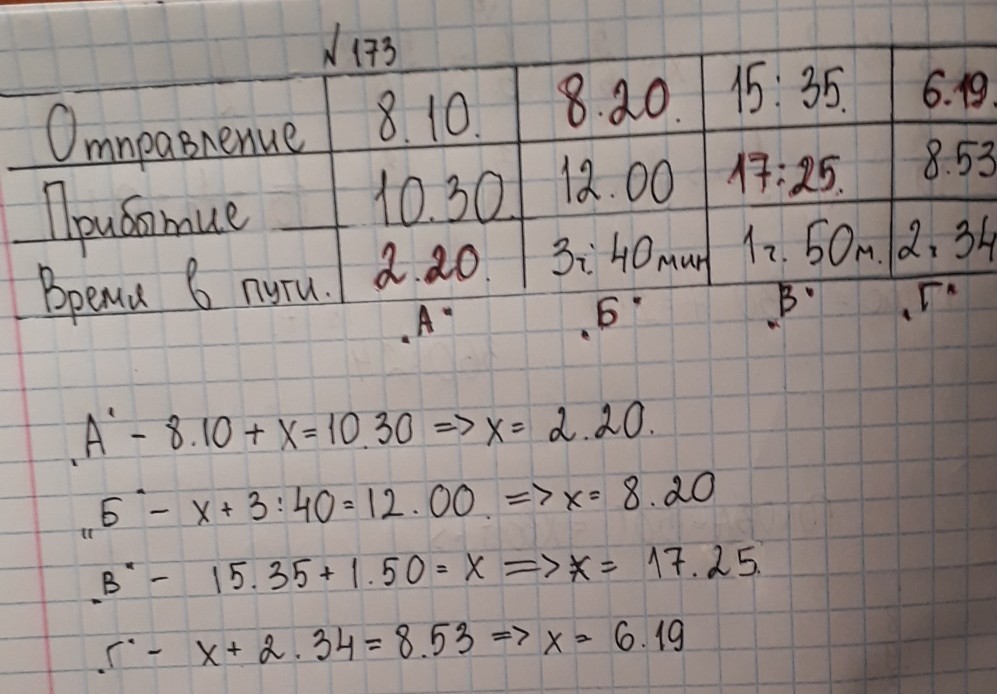 № 173
Отправление 8.10. 8.20. 15:35. 6.19.
Прибытие 10.30 12.00 17:25. 8.53
Время в пути. 2.20. 3ч 40мин 1ч. 50м. 2ч 34
„А“ „Б“ „В“ „Г“
„А“ – 8.10 + x = 10.30 => x = 2.20.
„Б“ – x + 3:40 = 12.00. => x = 8.20
„В“ – 15.35 + 1.50 = x => x = 17.25.
„Г“ – x + 2.34 = 8.53 => x = 6.19